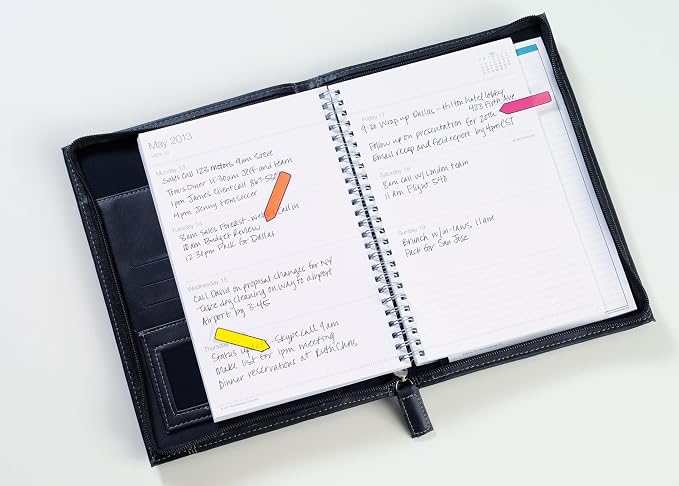 May 2013
Monday 13
Sales Call 123 motors 9am Steve
Tom's Diner 11:30am Jeff and team
1pm James Client Call 867-530
4pm Jenny from soccer
Tuesday 14
8am Sales Forecast - call in
10am Budget Review
12:30pm Pack for Dallas
Wednesday 15
Call David on proposal changes for NY
Take dry cleaning on way to airport
Airport by 3:45
Thursday
Status Skype call 9am
Make list for 1pm meeting
Dinner reservations at Ruth Chris
Friday 17
9:30 Wrap up Dallas - Hilton hotel lobby
423 Fifth Ave
Follow up on presentation for 20th
Email recap and field report by 4pm CST
Saturday 18
8am call w/ London team
11am Flight 540
Sunday 19
Brunch w/ in-laws 11am
Pack for San Jose